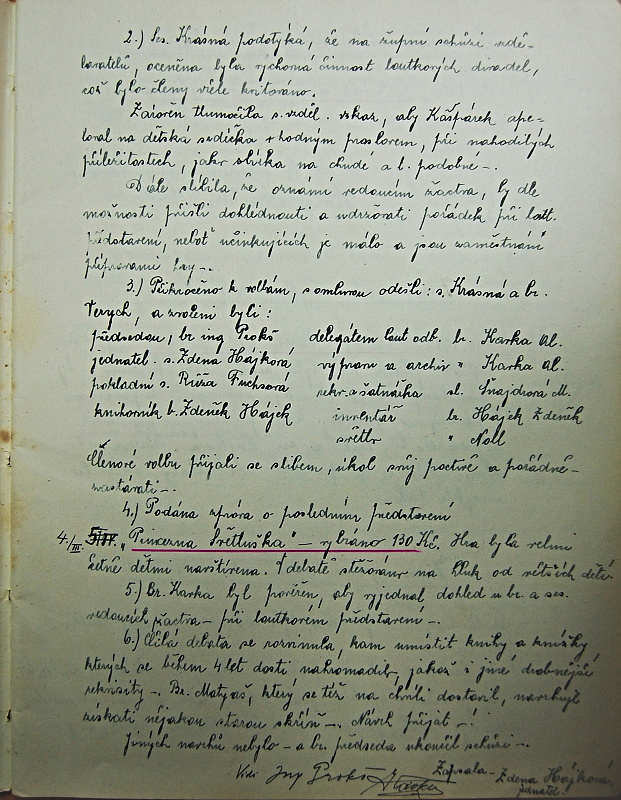 2.) Ses. Krásná podotýká, že na župní schůzi vzdě-
lavatelů, oceněna byla výchovná činnost loutkových divadel,
což bylo členy vřele kvitováno.
Zároveň tlumočila s. vzděl. vzkaz, aby Kašpárek ape-
loval na dětská srdéčka vhodným proslovem, při nahodilých
příležitostech, jako sbírka na chudé a t. podobné -.
Dále slíbila, že oznámí vedoucím žactva, by dle
možnosti přišli dohlédnouti a udržovati pořádek při lout.
představení, neboť účinkujících je málo a jsou zaměstnáni
přípravami hry -.
3.) Přikročeno k volbám, s omluvou odešli: s. Krásná a br.
Terych, a zvoleni byli:
předsedou, br ing Prokš delegátem lout odb. br. Karka Al.
jednatel. s. Zdena Hájková výpravu a archiv " Karka Al.
pokladní s. Růža Fuchsová rekv. a šatnářka sl. Šnajdrová M.
knihovník b. Zdeněk Hájek inventář br. Hájek Zdeněk
světlo " Noll
Členové volbu přijali se slibem, úkol svůj poctivě a pořádně
zastávati -.
4.) Podána zpráva o posledním představení
4./III. „Princezna Světluška" - vybráno 130 Kč. Hra byla velmi
četně dětmi navštívena. V debatě stěžováno na hluk od větších dětí.
5.) Br. Karka byl pověřen, aby vyjednal dohled u br. a ses.
vedoucích žactva - při loutkovém představení -.
6.) Čilá debata se rozvinula, kam umístit knihy a knížky,
kterých se během 4 let dosti nahromadilo, jakož i jiné drobnější
rekvisity -. Br. Matyáš, který se též na chvíli dostavil, navrhuje
získati nějakou starou skříň -. Návrh přijat -!
Jiných návrhů nebylo - a br. předseda ukončil schůzi -.
Vidi Ing Prokš Zapsala - Zdena Hájková
jednatel.